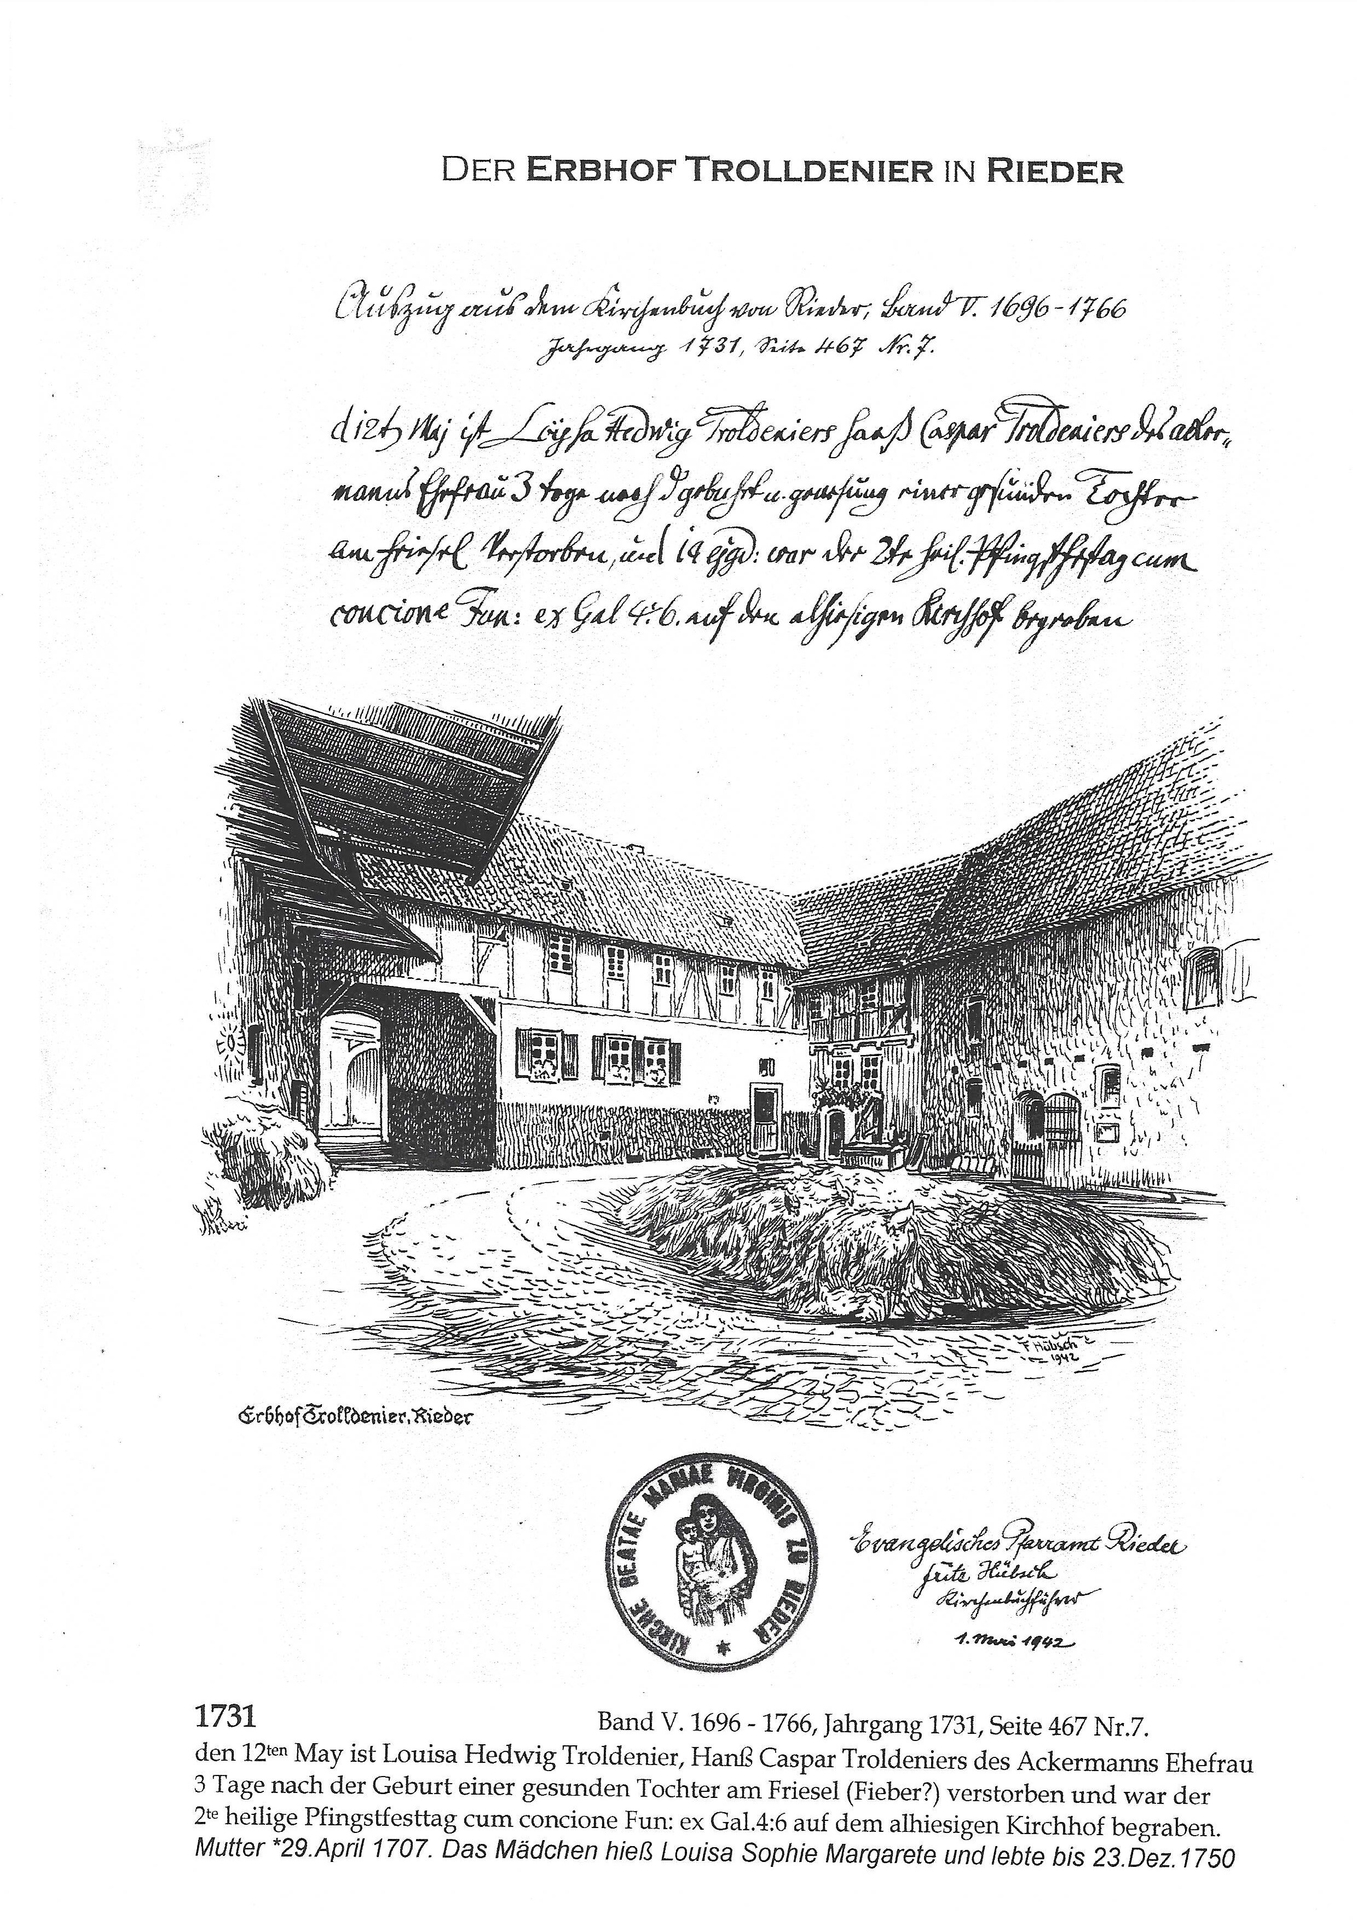 DER ERBHOF TROLLDENIER IN RIEDER
Auszug aus dem Kirchenbuch von Rieder, Band V. 1696-1766
Jahrgang 1731, Seite 467 Nr. 7.
d 12t Maj ist Loysa Hedwig Troldeniers Hanß Caspar Troldeniers des acker-
manns Ehefrau 3 tage nach d gebuhrt u. genesung einer gesunden Tochter
am Friesel Verstorben, und war der 2te heil. Pfingstfestag cum
concione Fun: ex Gal 4:6. auf den alhiesigen Kirchhof begraben
F Hübsch
1942
Erbhof Trolldenier, Rieder
KIRCHE BEATAE MARIAE VIRGINIS ZU RIEDER
Evangelisches Pfarramt Rieder
Fritz Hübsch
Kirchenbuchführer
1. Mai 1942
1731 Band V. 1696 - 1766, Jahrgang 1731, Seite 467 Nr.7.
den 12ten May ist Louisa Hedwig Troldenier, Hanß Caspar Troldeniers des Ackermanns Ehefrau
3 Tage nach der Geburt einer gesunden Tochter am Friesel (Fieber?) verstorben und war der
2te heilige Pfingstfesttag cum concione Fun: ex Gal.4:6 auf dem alhiesigen Kirchhof begraben.
Mutter *29.April 1707. Das Mädchen hieß Louisa Sophie Margarete und lebte bis 23.Dez.1750